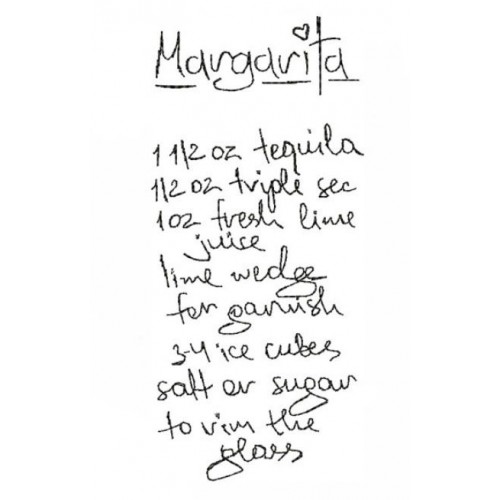 Margarita
1 1/2 oz tequila
1/2 oz triple sec
1 oz fresh lime
juice
lime wedge
for garnish
3-4 ice cubes
salt or sugar
to rim the
glass